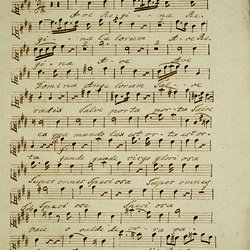 Ave Regina Re
gina Caelorum Ave Re
gina Ave Ave
Domina Angelorum Salve
radix Salve porta porta Salve
ex qua mundo lux est orta est or
ta gaude gaude virgo gloriosa
Super omnes Speciosa Super omnes
Speciosa Speciosa
vale o valde decora